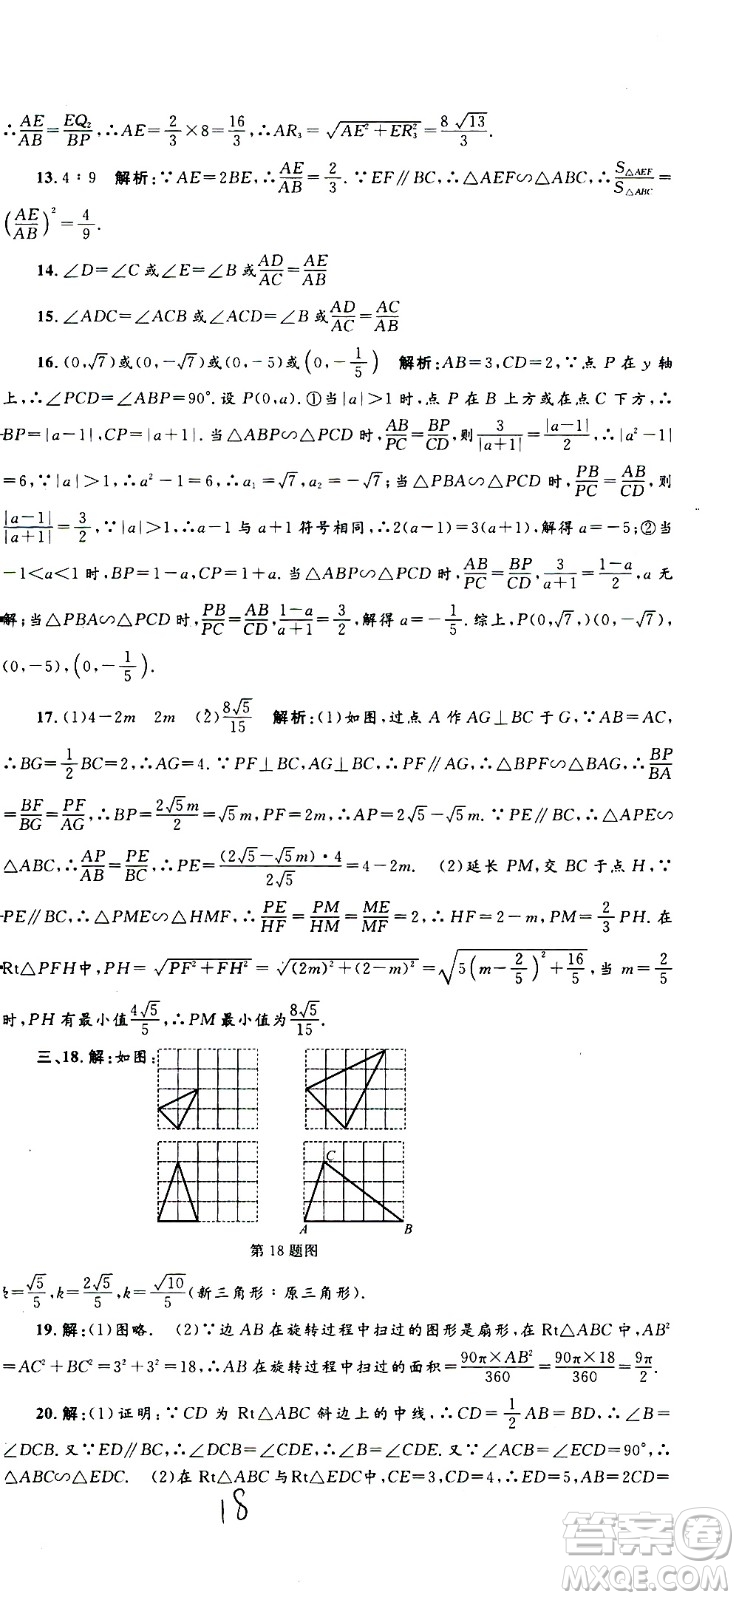 ∴AE/AB=EQ₂/BP, ∴AE=2/3×8=16/3, ∴AR₃=√(AE²+ER₃²)=8√13/3.
13.4∶9 解析:∵AE=2BE,∴AE/AB=2/3.∵EF∥BC,∴△AEF∽△ABC,∴S△AEF/S△ABC=
(AE/AB)²=4/9.
14.∠D=∠C或∠E=∠B或AD/AC=AE/AB
15.∠ADC=∠ACB或∠ACD=∠B或AD/AC=AC/AB
16.(0,√7)或(0,-√7)或(0,-5)或(0,-1/5) 解析:AB=3,CD=2,∵点P在y轴
上,∴∠PCD=∠ABP=90°.设P(0,a).①当|a|>1时,点P在B上方或在点C下方,∴
BP=|a-1|,CP=|a+1|.当△ABP∽△PCD时,AB/PC=BP/CD,则3/|a+1|=|a-1|/2,∴|a²-1|
=6,∵|a|>1,∴a²-1=6,∴a₁=√7,a₂=-√7;当△PBA∽△PCD时,PB/PC=AB/CD,则
|a-1|/|a+1|=3/2,∵|a|>1,∴a-1与a+1符号相同,∴2(a-1)=3(a+1),解得a=-5;②当
-1<a<1时,BP=1-a,CP=1+a.当△ABP∽△PCD时,AB/PC=BP/CD,3/(a+1)=(1-a)/2,a无
解;当△PBA∽△PCD时,PB/PC=AB/CD,(1-a)/(a+1)=3/2,解得a=-1/5.综上,P(0,√7),(0,-√7),
(0,-5),(0,-1/5).
17.(1)4-2m 2m (2)8√5/15 解析:(1)如图,过点A作AG⊥BC于G,∵AB=AC,
∴BG=1/2BC=2,∴AG=4.∵PF⊥BC,AG⊥BC,∴PF∥AG,∴△BPF∽△BAG,∴BP/BA
=BF/BG=PF/AG,∴BP=2√5m/2=√5m,PF=2m,∴AP=2√5-√5m.∵PE∥BC,∴△APE∽
△ABC,∴AP/AB=PE/BC,∴PE=(2√5-√5m)·4/2√5=4-2m. (2)延长PM,交BC于点H,∵
PE∥BC,∴△PME∽△HMF,∴PE/HF=PM/HM=ME/MF=2,∴HF=2-m,PM=2/3PH.在
Rt△PFH中,PH=√(PF²+FH²)=√((2m)²+(2-m)²)=√(5(m-2/5)²+16/5),当m=2/5
时,PH有最小值4√5/5,∴PM最小值为8√5/15.
三、18.解:如图:
C
A B
第18题图
k=√5/5,k=2√5/5,k=√10/5(新三角形∶原三角形).
19.解:(1)图略. (2)∵边AB在旋转过程中扫过的图形是扇形,在Rt△ABC中,AB²
=AC²+BC²=3²+3²=18,∴AB在旋转过程中扫过的面积=90π×AB²/360=90π×18/360=9π/2.
20.解:(1)证明:∵CD为Rt△ABC斜边上的中线,∴CD=1/2AB=BD,∴∠B=
∠DCB.又∵ED∥BC,∴∠DCB=∠CDE,∴∠B=∠CDE.又∵∠ACB=∠ECD=90°,∴
△ABC∽△EDC. (2)在Rt△ABC与Rt△EDC中,CE=3,CD=4,∴ED=5,∵CD=
18
答案圈
MXQE.COM